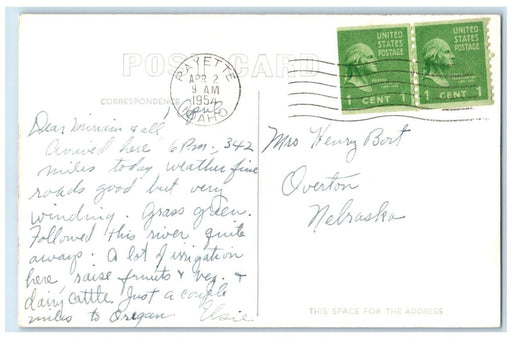 POST CARD
PAYETTE
APR 2
9 AM
1954
IDAHO
UNITED
STATES
POSTAGE
1 CENT 1
UNITED
STATES
POSTAGE
1 CENT 1
CORRESPONDENCE
Dear & all
Arrived here 6 P.m., 342
miles today weather fine
roads good but very
winding. Grass green.
Followed this river quite
aways. A lot of irrigation
here raise fruits & veg. &
dairy cattle. Just a couple
miles to Oregon. Elsie
Mrs Henry Bort
Overton
Nebraska
THIS SPACE FOR THE ADDRESS